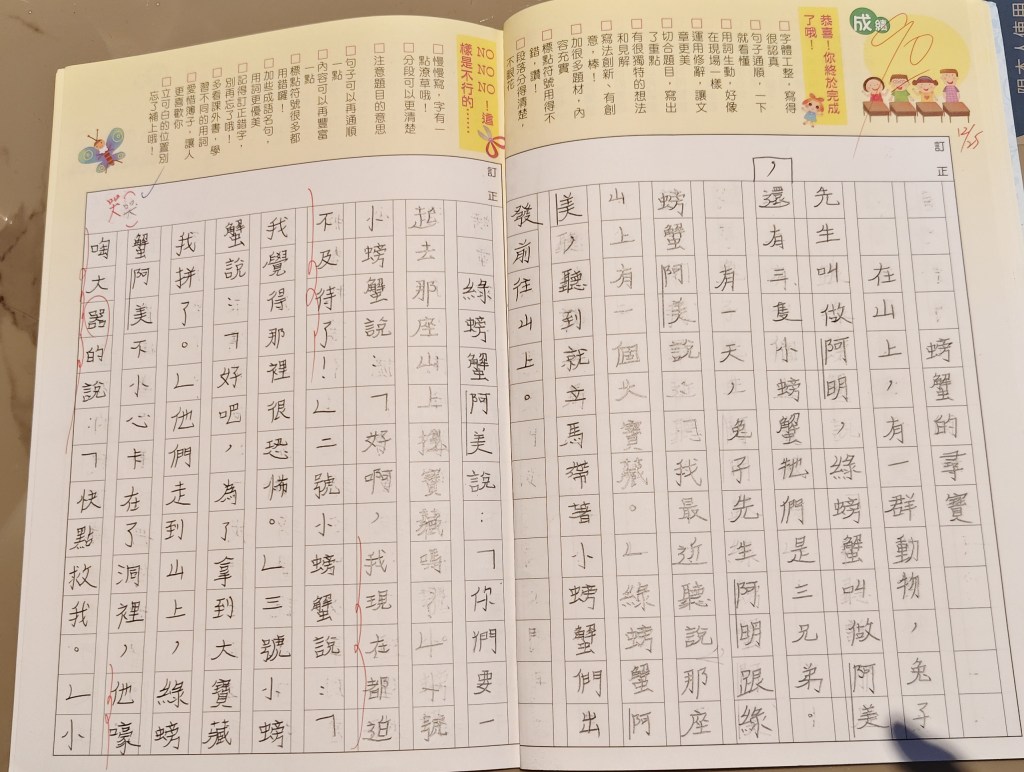 成績
90
12/25
恭喜!你終於完成
了哦!
□字體工整,寫得
很認真
□句子通順,一下
就看懂
□用詞生動,好像
在現場一樣
□運用修辭,讓文
章更美
□切合題目,寫出
了重點
□有很獨特的想法
和見解
□寫法創新、有創
意,棒!
□加很多題材,內
容充實
□標點符號用得不
錯,讚!
□段落分得清楚,
不眼花
訂正
螃蟹的尋寶
在山上,有一群動物,兔子
先生叫做阿明,綠螃蟹叫做阿美
,
還有三隻小螃蟹牠們是三兄弟。
有一天,兔子先生阿明跟綠
螃蟹阿美說 我最近聽說那座
山上有一個大寶藏。」綠螃蟹阿
美,聽到就立馬帶著小螃蟹們出
發前往山上。
訂正
NO NO NO!這
樣是不行的……
□慢慢寫,字有一
點潦草哦!
□分段可以更清楚
□注意題目的意思
□句子可以再通順
一點
□內容可以再豐富
一點
□標點符號很多都
用錯囉!
□加些成語名句,
用詞更優美
□記得訂正錯字,
別再忘了哦!
□多看課外書,學
習不同的用詞
□愛惜簿子,讓人
更喜歡你
□立可白的位置別
忘了補上哦!
訂正
綠螃蟹阿美說:「你們要一
起去那座山上 寶藏嗎?」 號
小螃蟹說:「好啊,我現在都迫
不及待了!」二號小螃蟹說:「
我覺得那裡很恐怖。」三號小螃
蟹說:「好吧,為了拿到大寶藏
我拼了。」他們走到山上,綠螃
蟹阿美不小心卡在了洞裡,他嚎
哭
哭
啕大器的說:「快點救我。」小